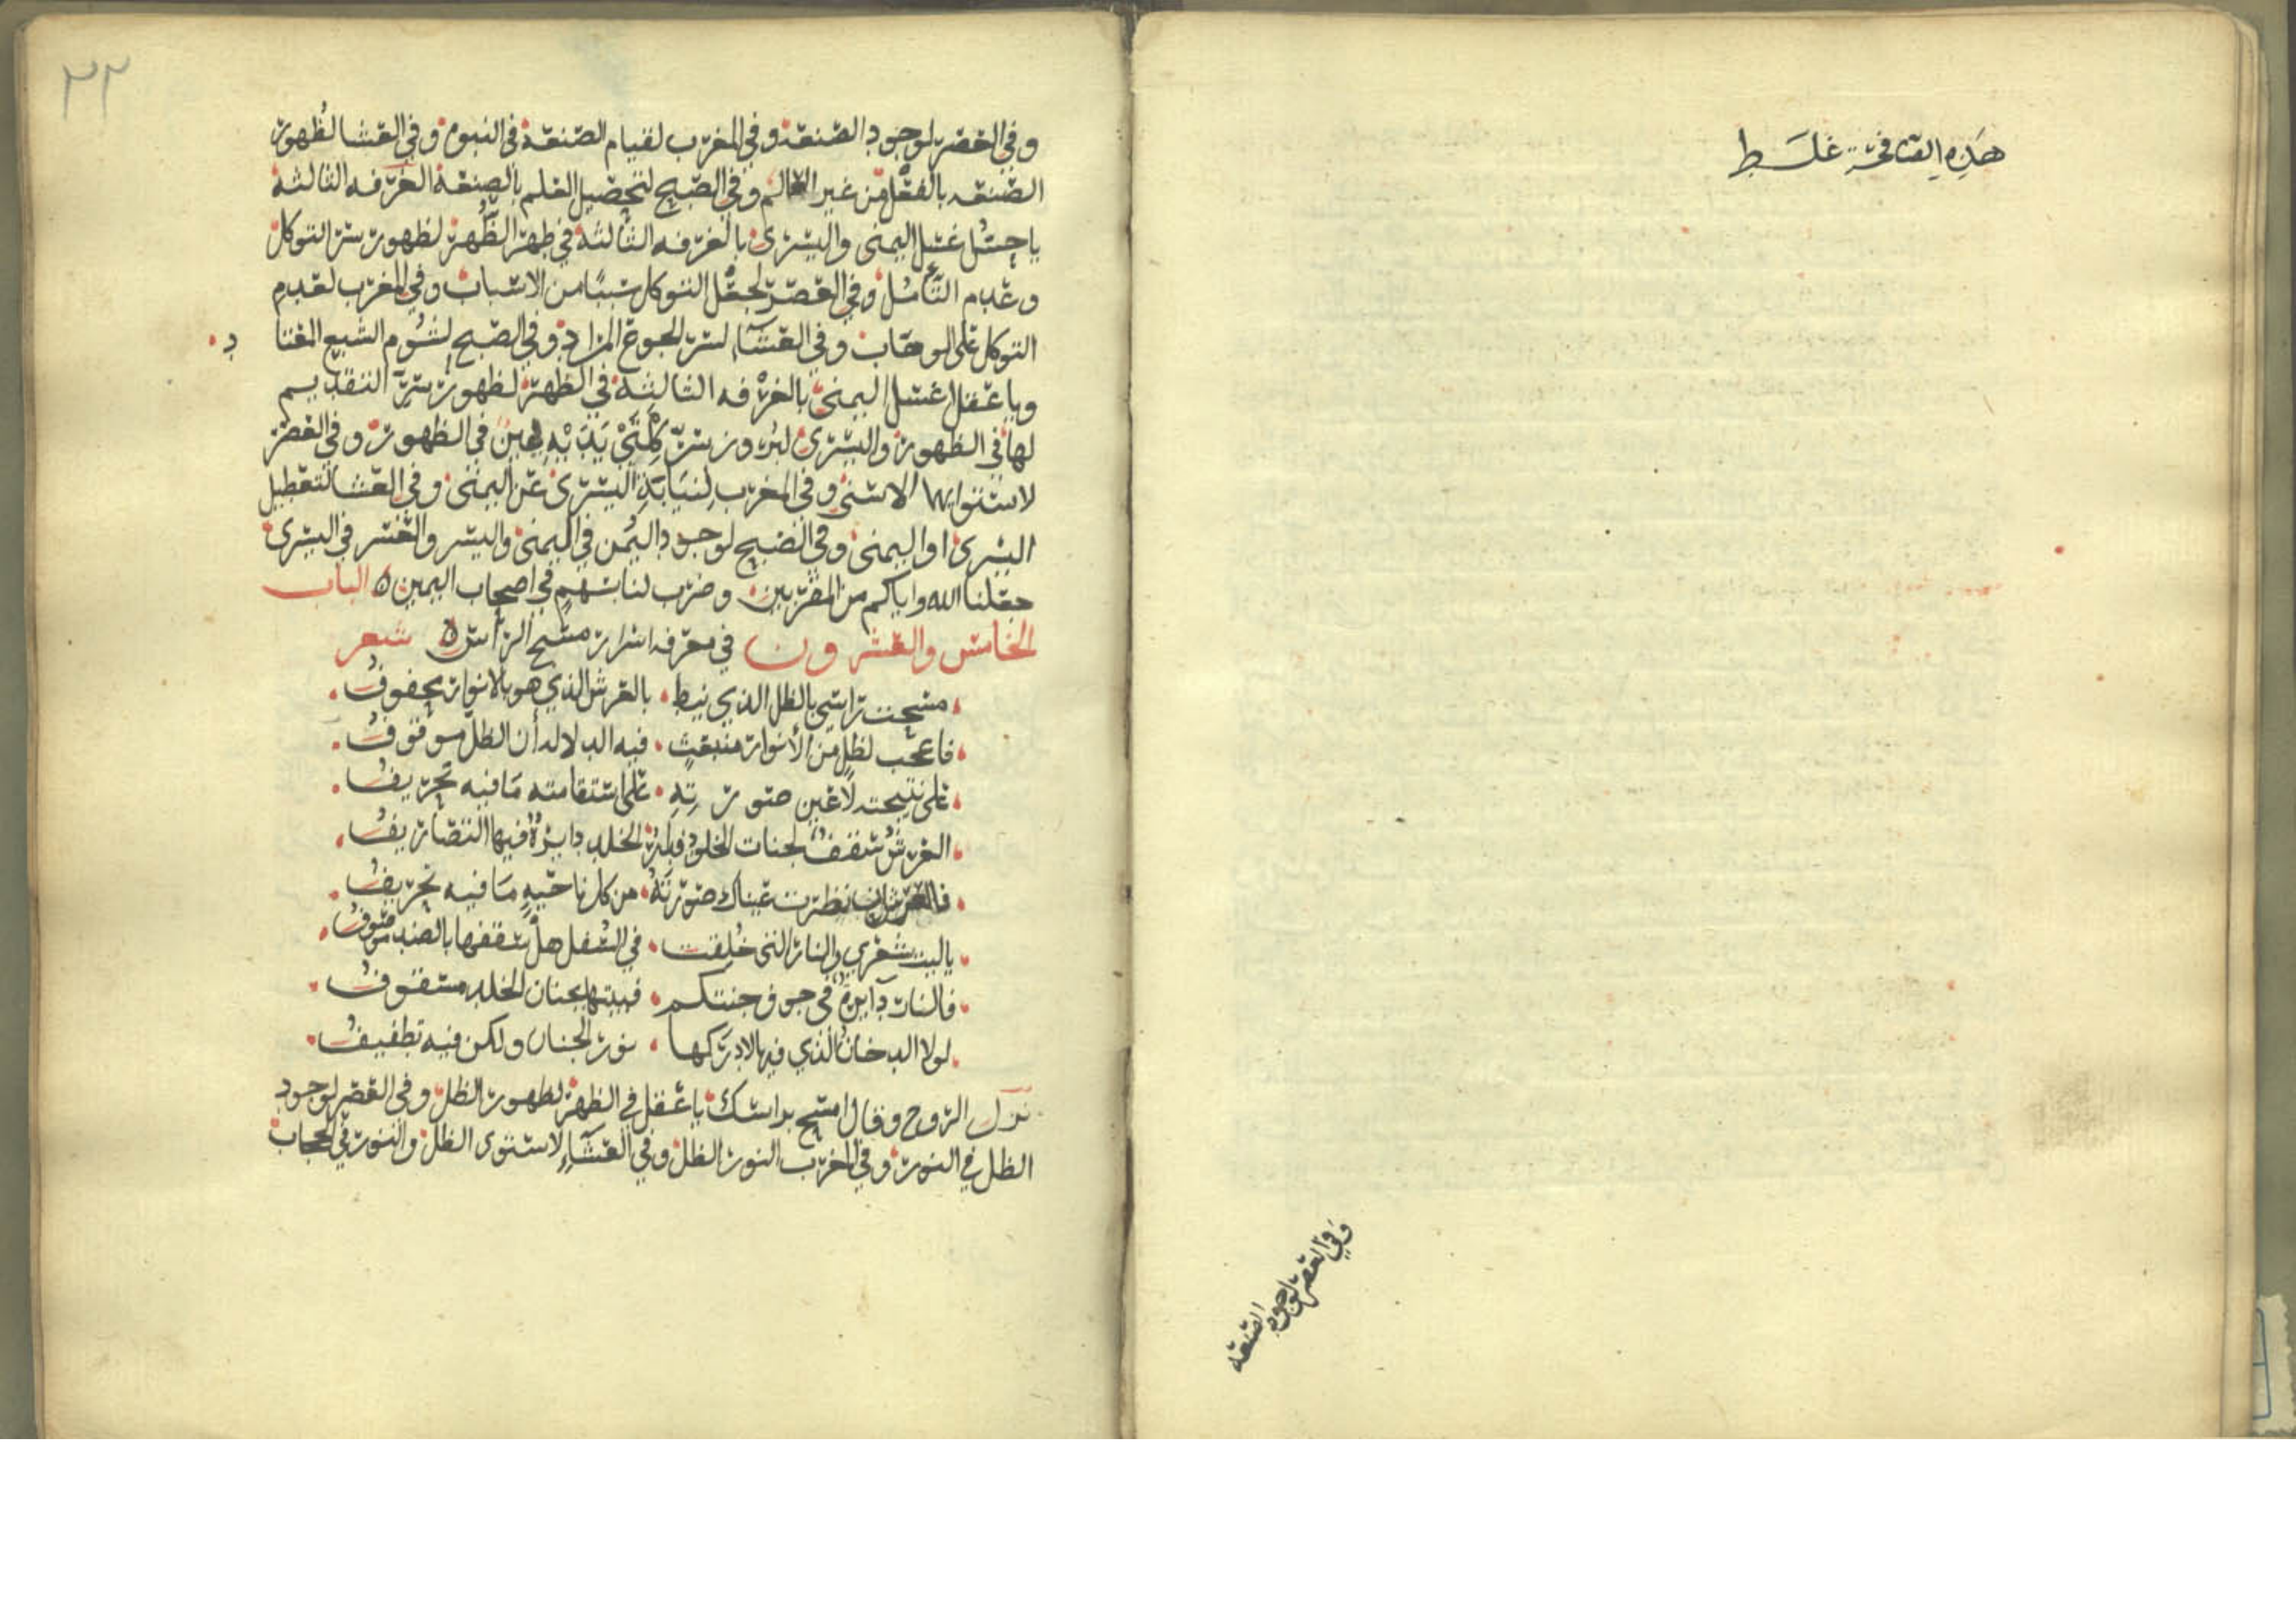 هَذِهِ الصّفحَة غلَط
وفي العصر لوجود الصنعة
٢٢
وفي العصر لوجود الصنعة وفي المغرب لقيام الصنعة في النوم وفي العشا لظهور
الصنعه بالفعل من غير العالم وفي الصبح لتحصيل العلم بالصنعة الغرفه الثالثة
يا حس غسل اليمنى واليسرى بالغرفه الثالثة في ظهر الظُهر لظهور سر التوكل
وعدم التأمل وفي العصر لجعل التوكل سببًا من الاسباب وفي المغرب لعدم
التوكل على الوهاب وفي العشآء لسر الجوع المراد وفي الصبح لشُوم الشبع المعتا د
ويا عقل اغسل اليمنى بالغرفه الثالثة في الظهر لظهور سر التقديم
لها في الظهور واليسرى لبروز سر كِلْتَيْ يَدَيْهِ يمين في الظهور وفي العصر
لاستوايها الاسنى وفي المغرب لِنيَابَةِ اليسرى عن اليمنى وفي العشا لتعطيل
اليسرى او اليمنى وفي الصبح لوجود اليُمن في اليمنى واليسر والعسر في اليسرى
جعلنا الله واياكم من المقربين وضرب لنا بسَهمٍ في اصحاب اليمين ٥ الباب
الخامس والعشرون في معرفه اسرار مسح الراس ٥ شعر
مسحت راسي بالظل الذي نيط • بالعرش الذي هو بالانوار محفوفُ
فاعجب لظلٍ من الأنوار منبعثٍ • فيه الدلاله أن الظلّ موقوفُ
على نتيجته لا عين صورتِهِ • على استقامته مَا فيه تحريفُ
العرشُ سقفٌ لجنات الخلود فلِمْ الخلد دايرةٌ فيها التصاريفُ
فالعرش ان نظرت عيناك صورتَهُ • من كل ناحيةٍ مَا فيه تحريفُ
يا ليت شعري والنار التي خُلِقت • في السُفل هل سقفها بالضد موصوفُ
فالنار دآيرةٌ في جوف جنتكم • فبيتها بجنان الخلد مسقوفُ
لولا الدخانُ الذي فيها لادرَكها • نور الجنان ولكن فيه تطفيفُ
نزل الروح وقال امسح براسك يا عقل في الظهر لظهور الظل وفي العصر لوجود
الظل في النور وفي المغرب النور الظل وفي العشآء لاستوى الظل والنور في الحجاب